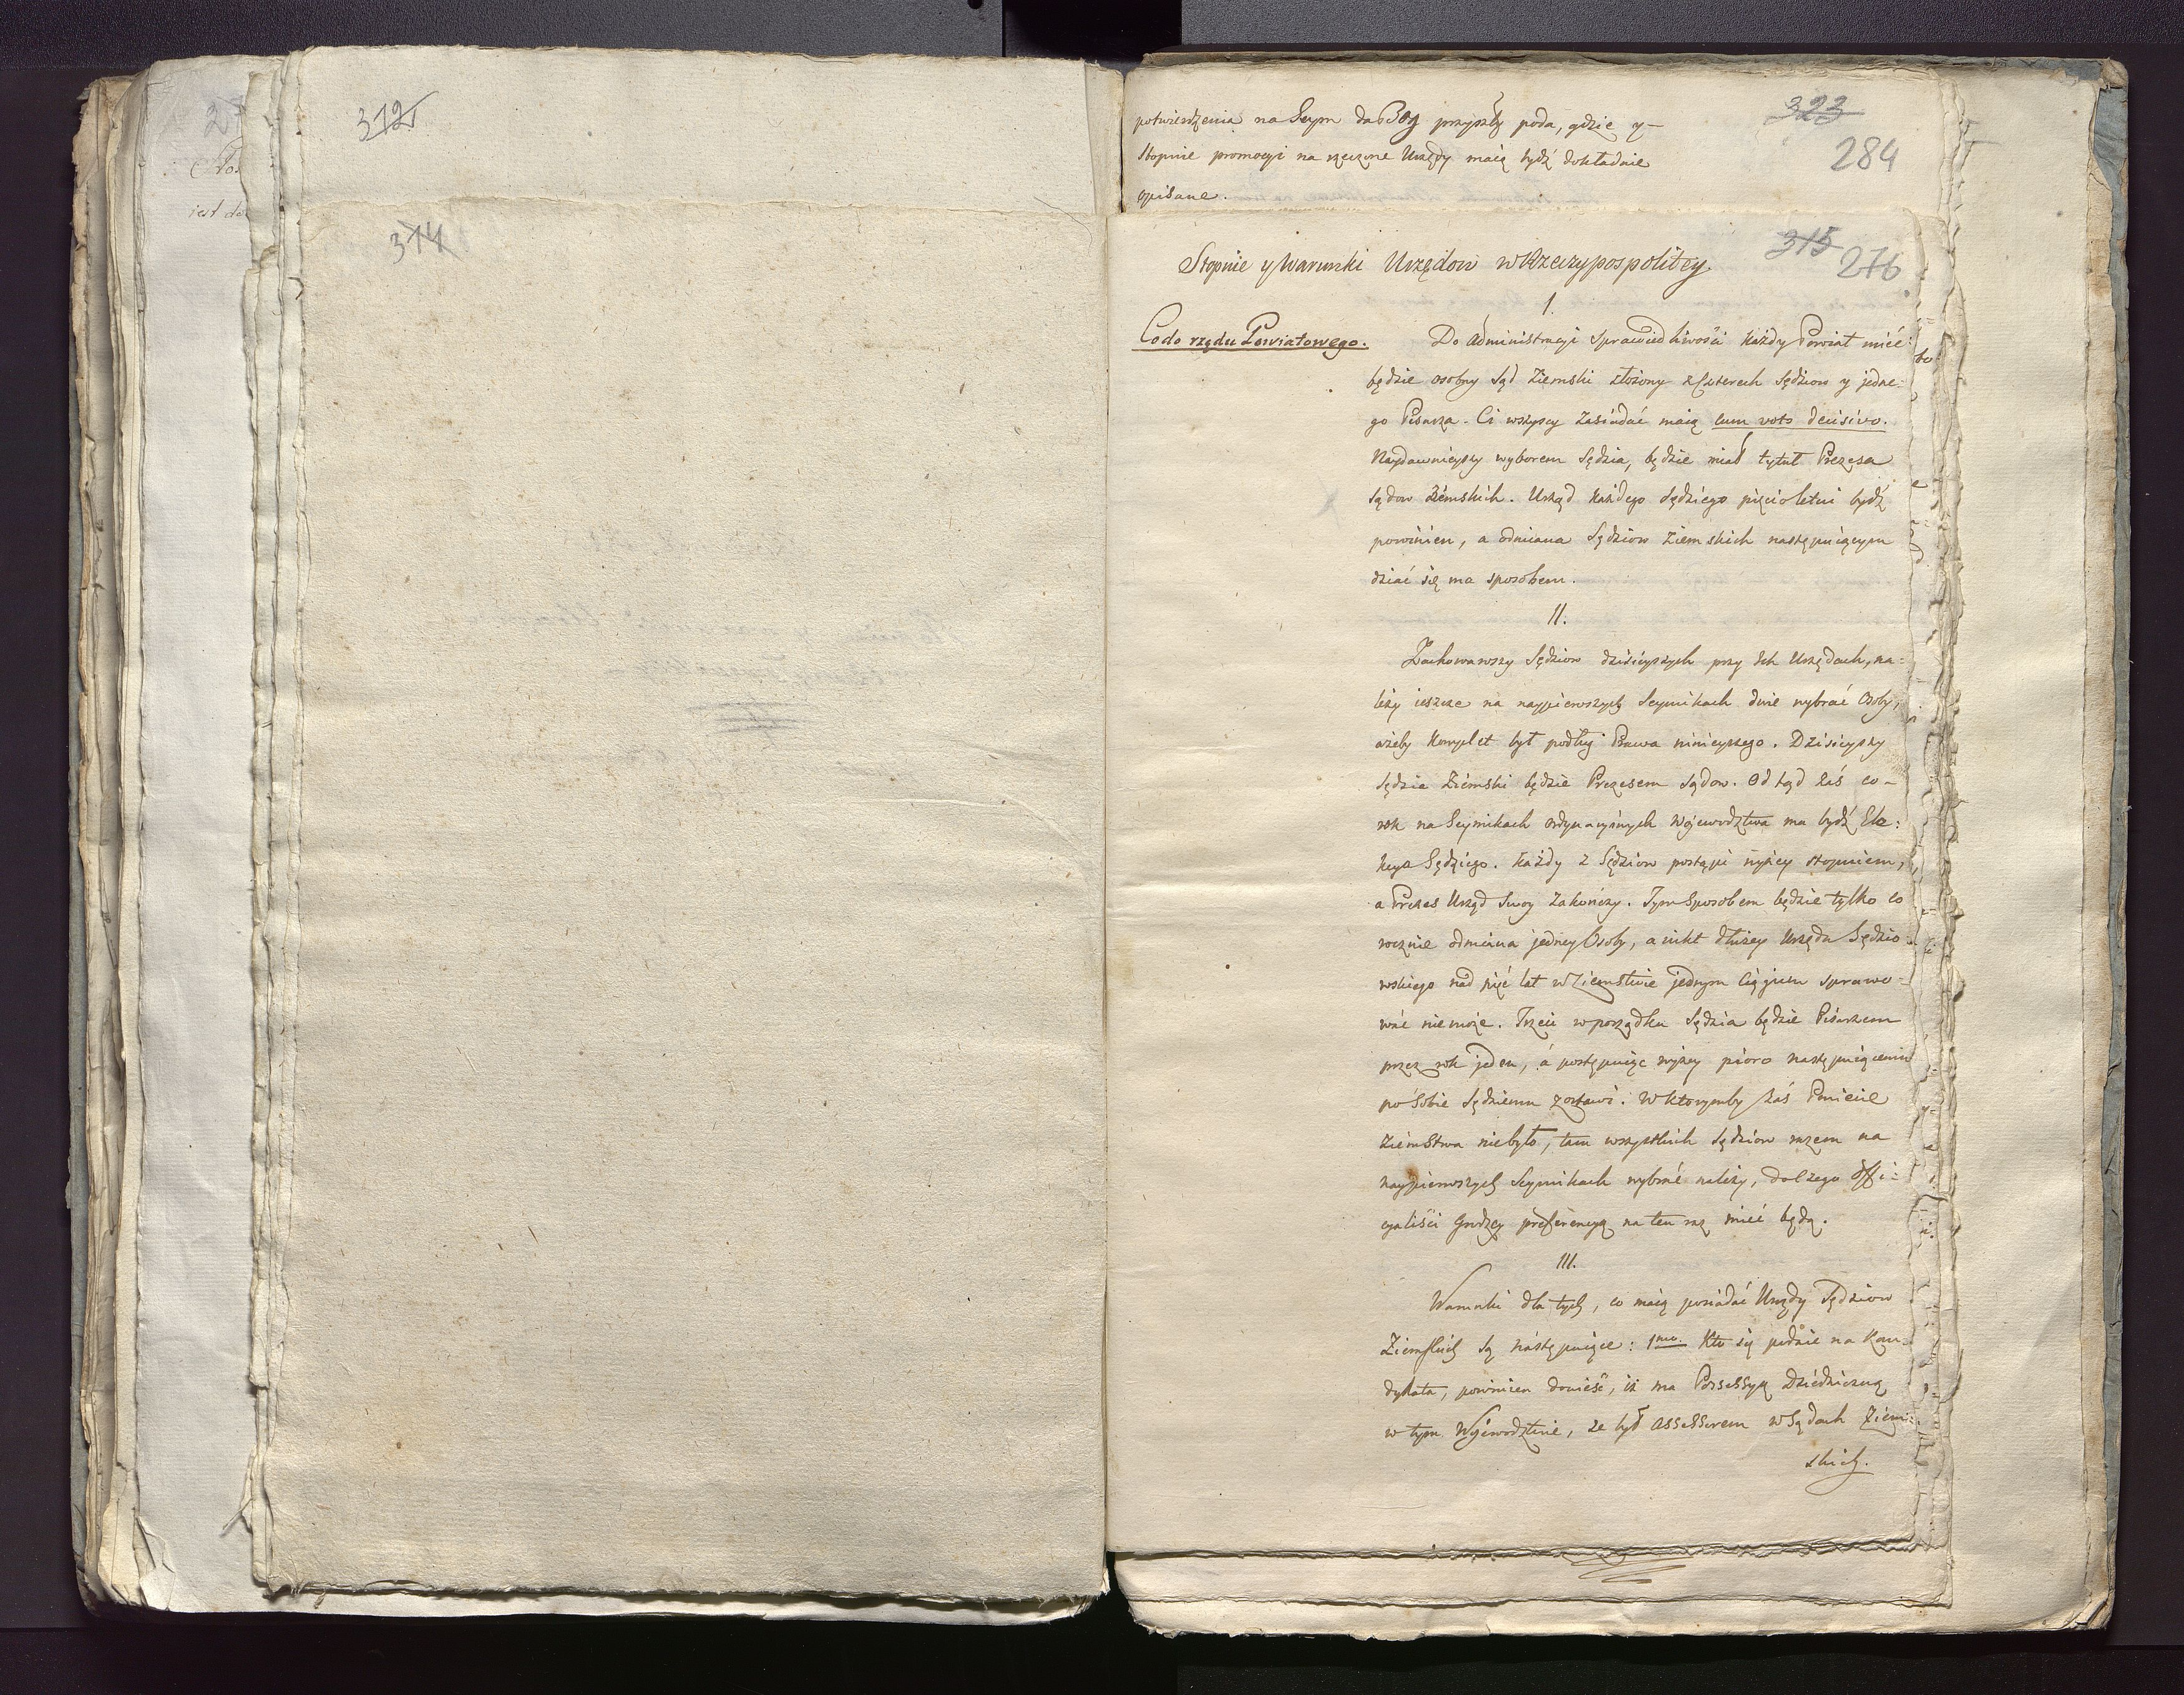 312
314
potwierdzenia na Seym da Bóg przyszły poda, gdzie y
Stopnie promocyi na rzeczone Urzędy maią bydź dokładnie
opisane.
323
284
Stopnie y Warunki Urzędow w Rzeczypospolitey
315
276
I.
Co do rządu Powiatowego.
Do Administracyi Sprawiedliwości każdy Powiat mieć
będzie osobny Sąd Ziemski złożony z Czterech Sędziow y jedne-
go Pisarza. Ci wszyscy zasiadać maią cum voto decisivo.
Naydawnieyszy wyborem Sędzia, będzie miał tytuł Prezesa
Sądow Ziemskich. Urząd każdego Sędziego pięcioletni bydź
powinien, a odmiana Sędziow Ziemskich następuiącym
dziać się ma sposobem.
II.
Zachowawszy Sędziow dzisieyszych przy Ich Urzędach, na-
leży ieszcze na naypierwszych Seymikach dwie wybrać Osoby,
ażeby Komplet był podług Prawa ninieyszego. Dzisieyszy
Sędzia Ziemski będzie Prezesem Sądow. Od tąd zaś co-
rok na Seymikach ordynaryinych Wojewodztwa ma bydź Ele:
kcya Sędziego. Każdy z Sędziow postąpi wyżey stopniem,
a Prezes Urząd Swoy zakończy. Tym Sposobem będzie tylko co
rocznie odmiana jedney Osoby, a nikt dłużey Urzędu Sędzio-
wskiego nad pięć lat w Ziemstwie jednym ciągiem sprawo-
wać nie może. Trzeci w porządku Sędzia będzie Pisarzem
przez rok jeden, a postępuiąc wyżey pioro następuiącemu
po Sobie Sędziemu zostawi. W ktorymby zaś Powiecie
Ziemstwa nie było, tam wszystkich Sędziow razem na
naypierwszych Seymikach wybrać należy, do czego Offi-
cyaliści Grodzcy preferencyą na ten raz mieć będą.
III.
Warunki dla tych, co maią posiadać Urzędy Sędziow
Ziemskich są następuiące: 1mo. Kto się podaie na Kan-
dydata, powinien dowieść, iż ma Possessyą Dziedziczną
w tym Wojewodztwie, że był Assessorem w Sądach Ziem:
skich.